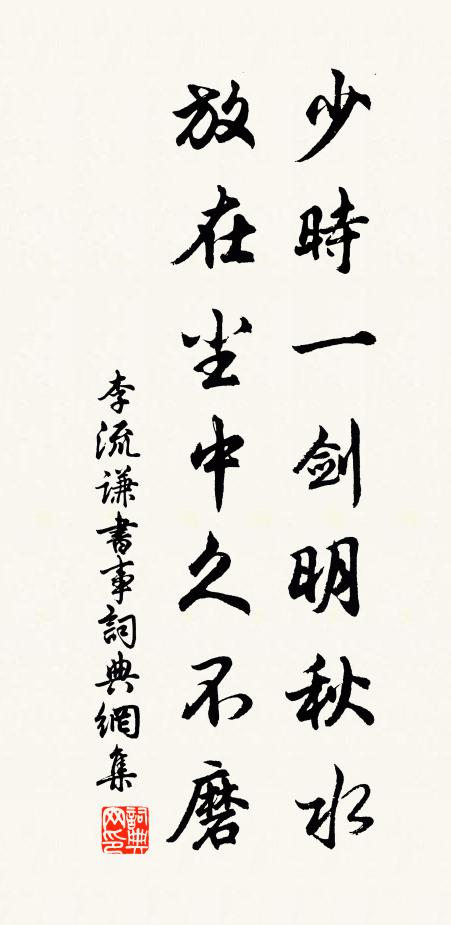 少時一劍明秋水
放在尘中久不磨
李流謙書事詞典網集
詞典网印